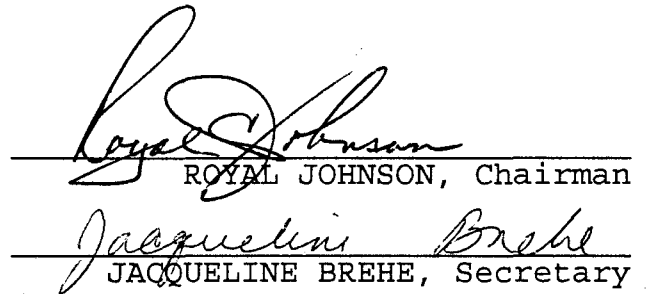 Royal C Johnson
ROYAL JOHNSON, Chairman
Jacqueline Brehe
JACQUELINE BREHE, Secretary